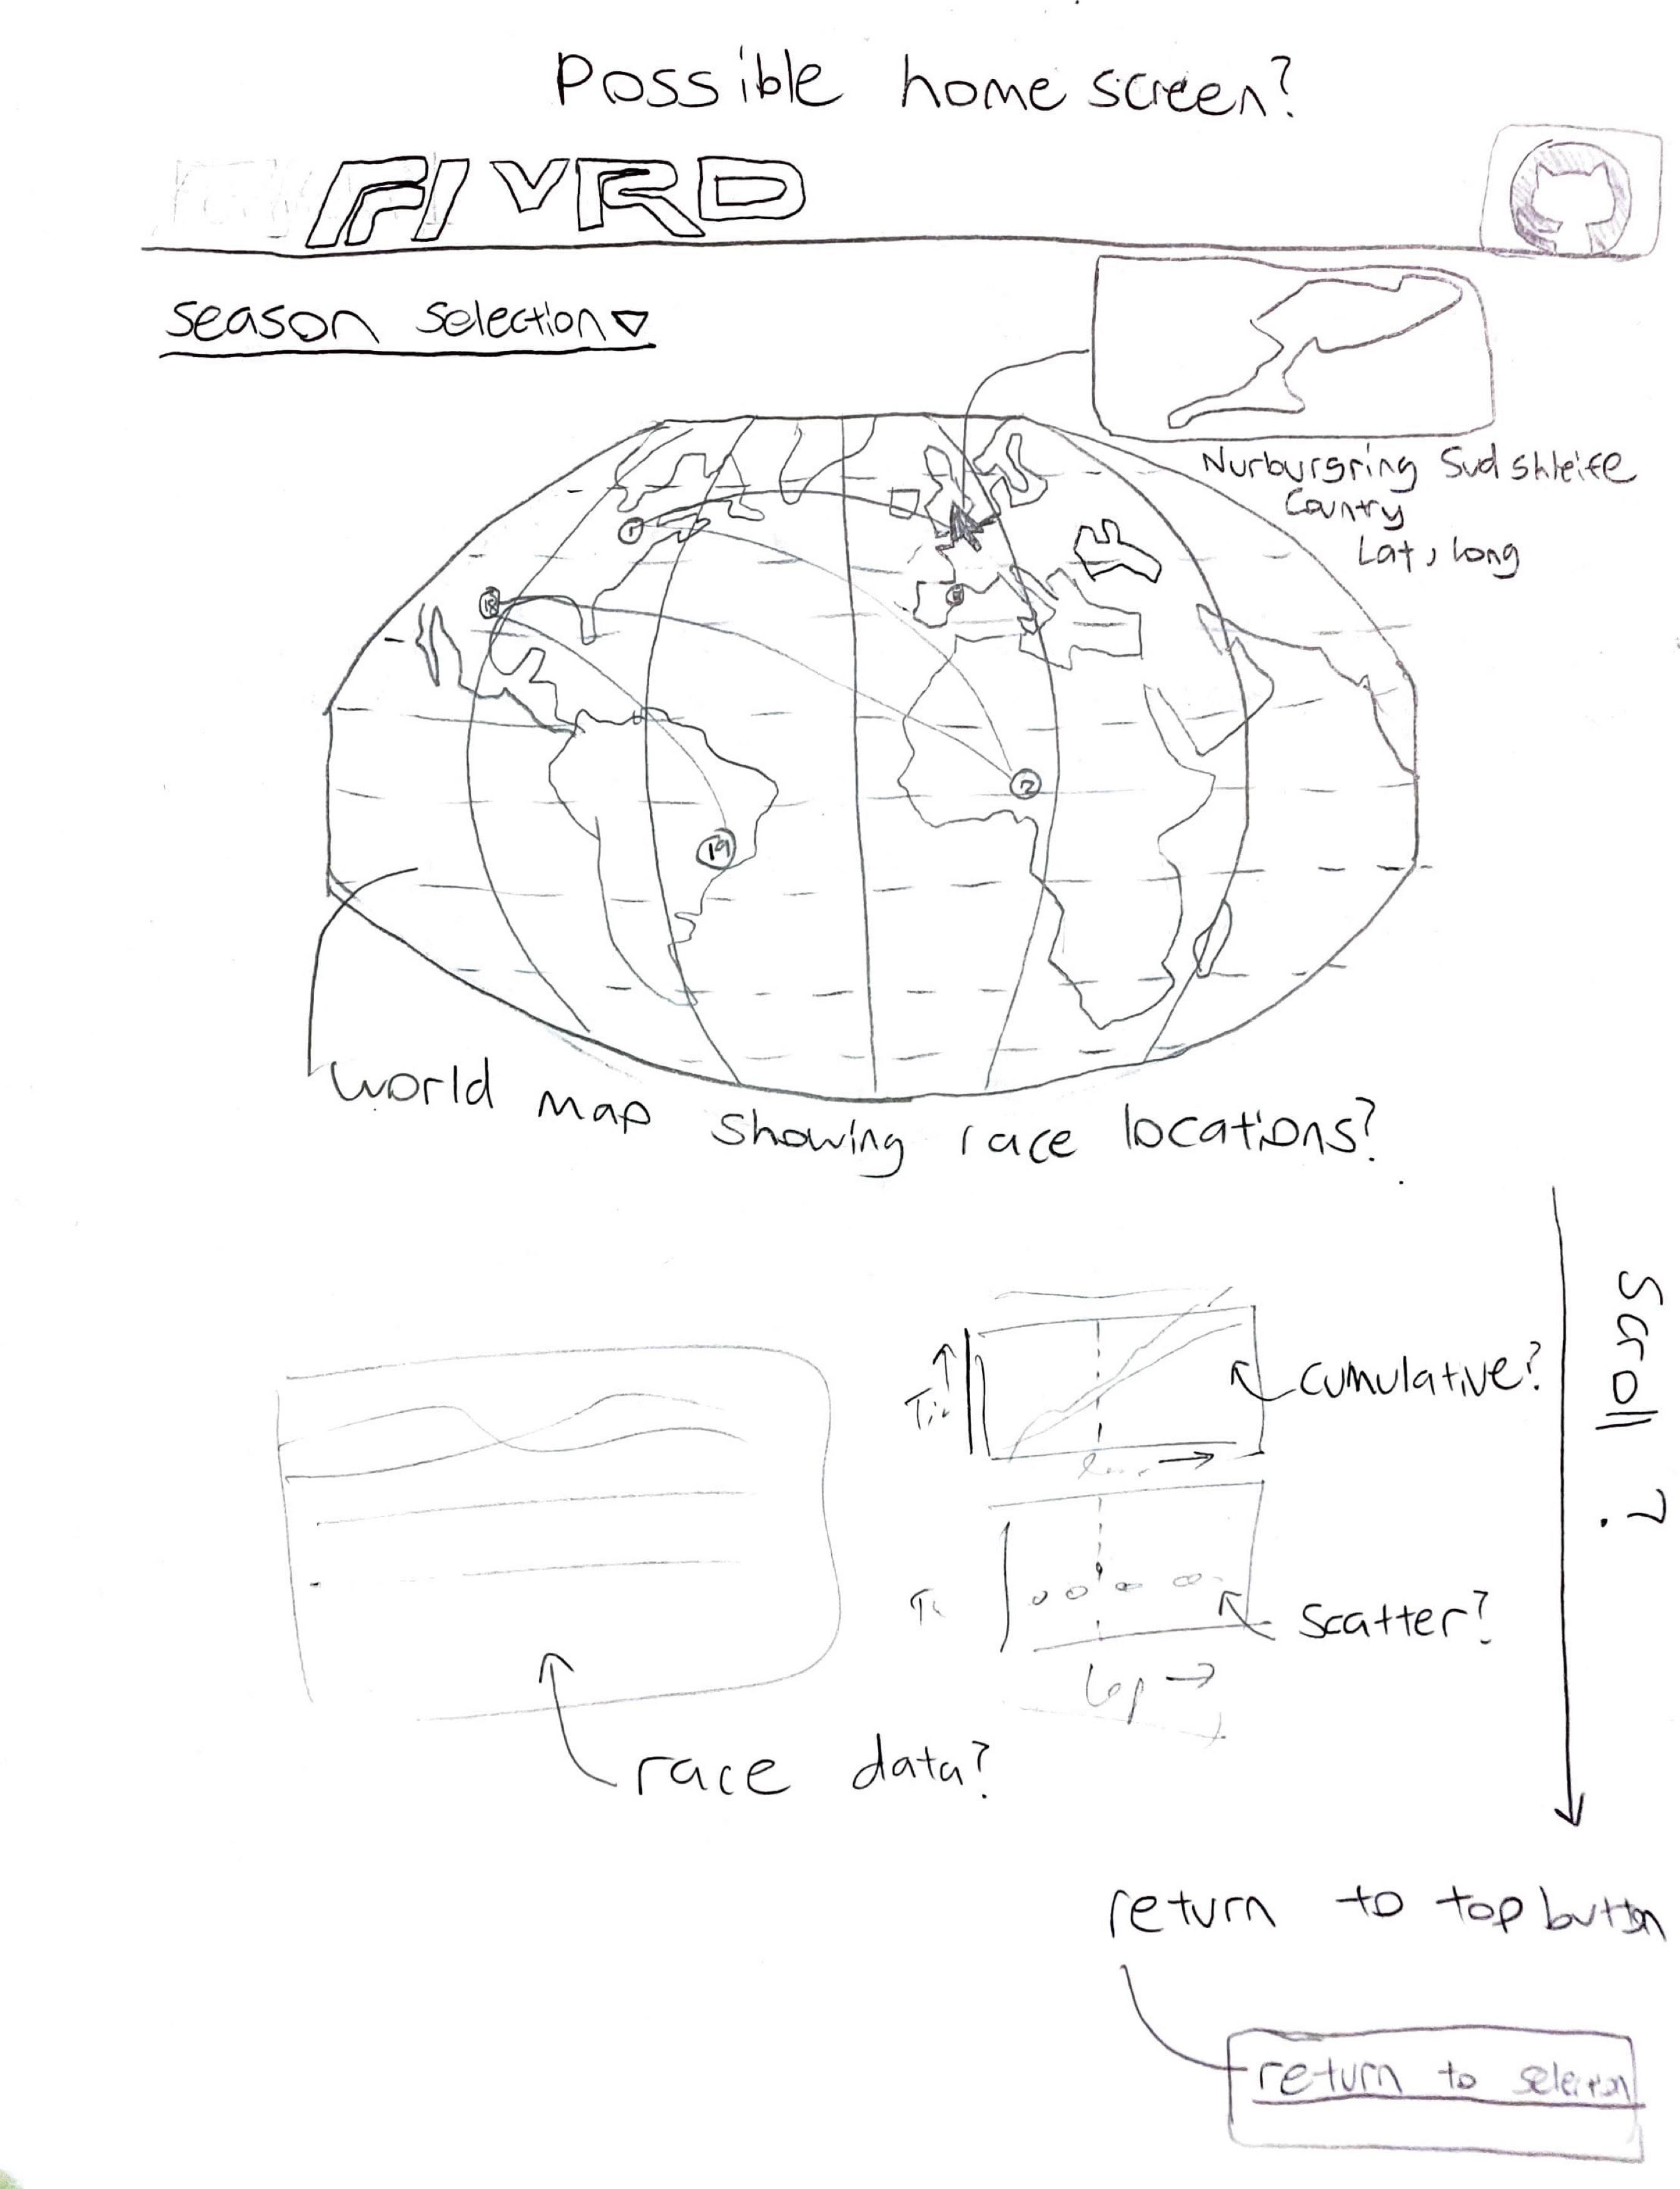 Possible home screen?
F1 VRD
Season Selection
Nurburgring Sud shleife
Country
Lat, long
1
18
2
19
World map showing race locations?
Scroll?
Cumulative?
Scatter?
Lap
race data?
return to top button
return to selection